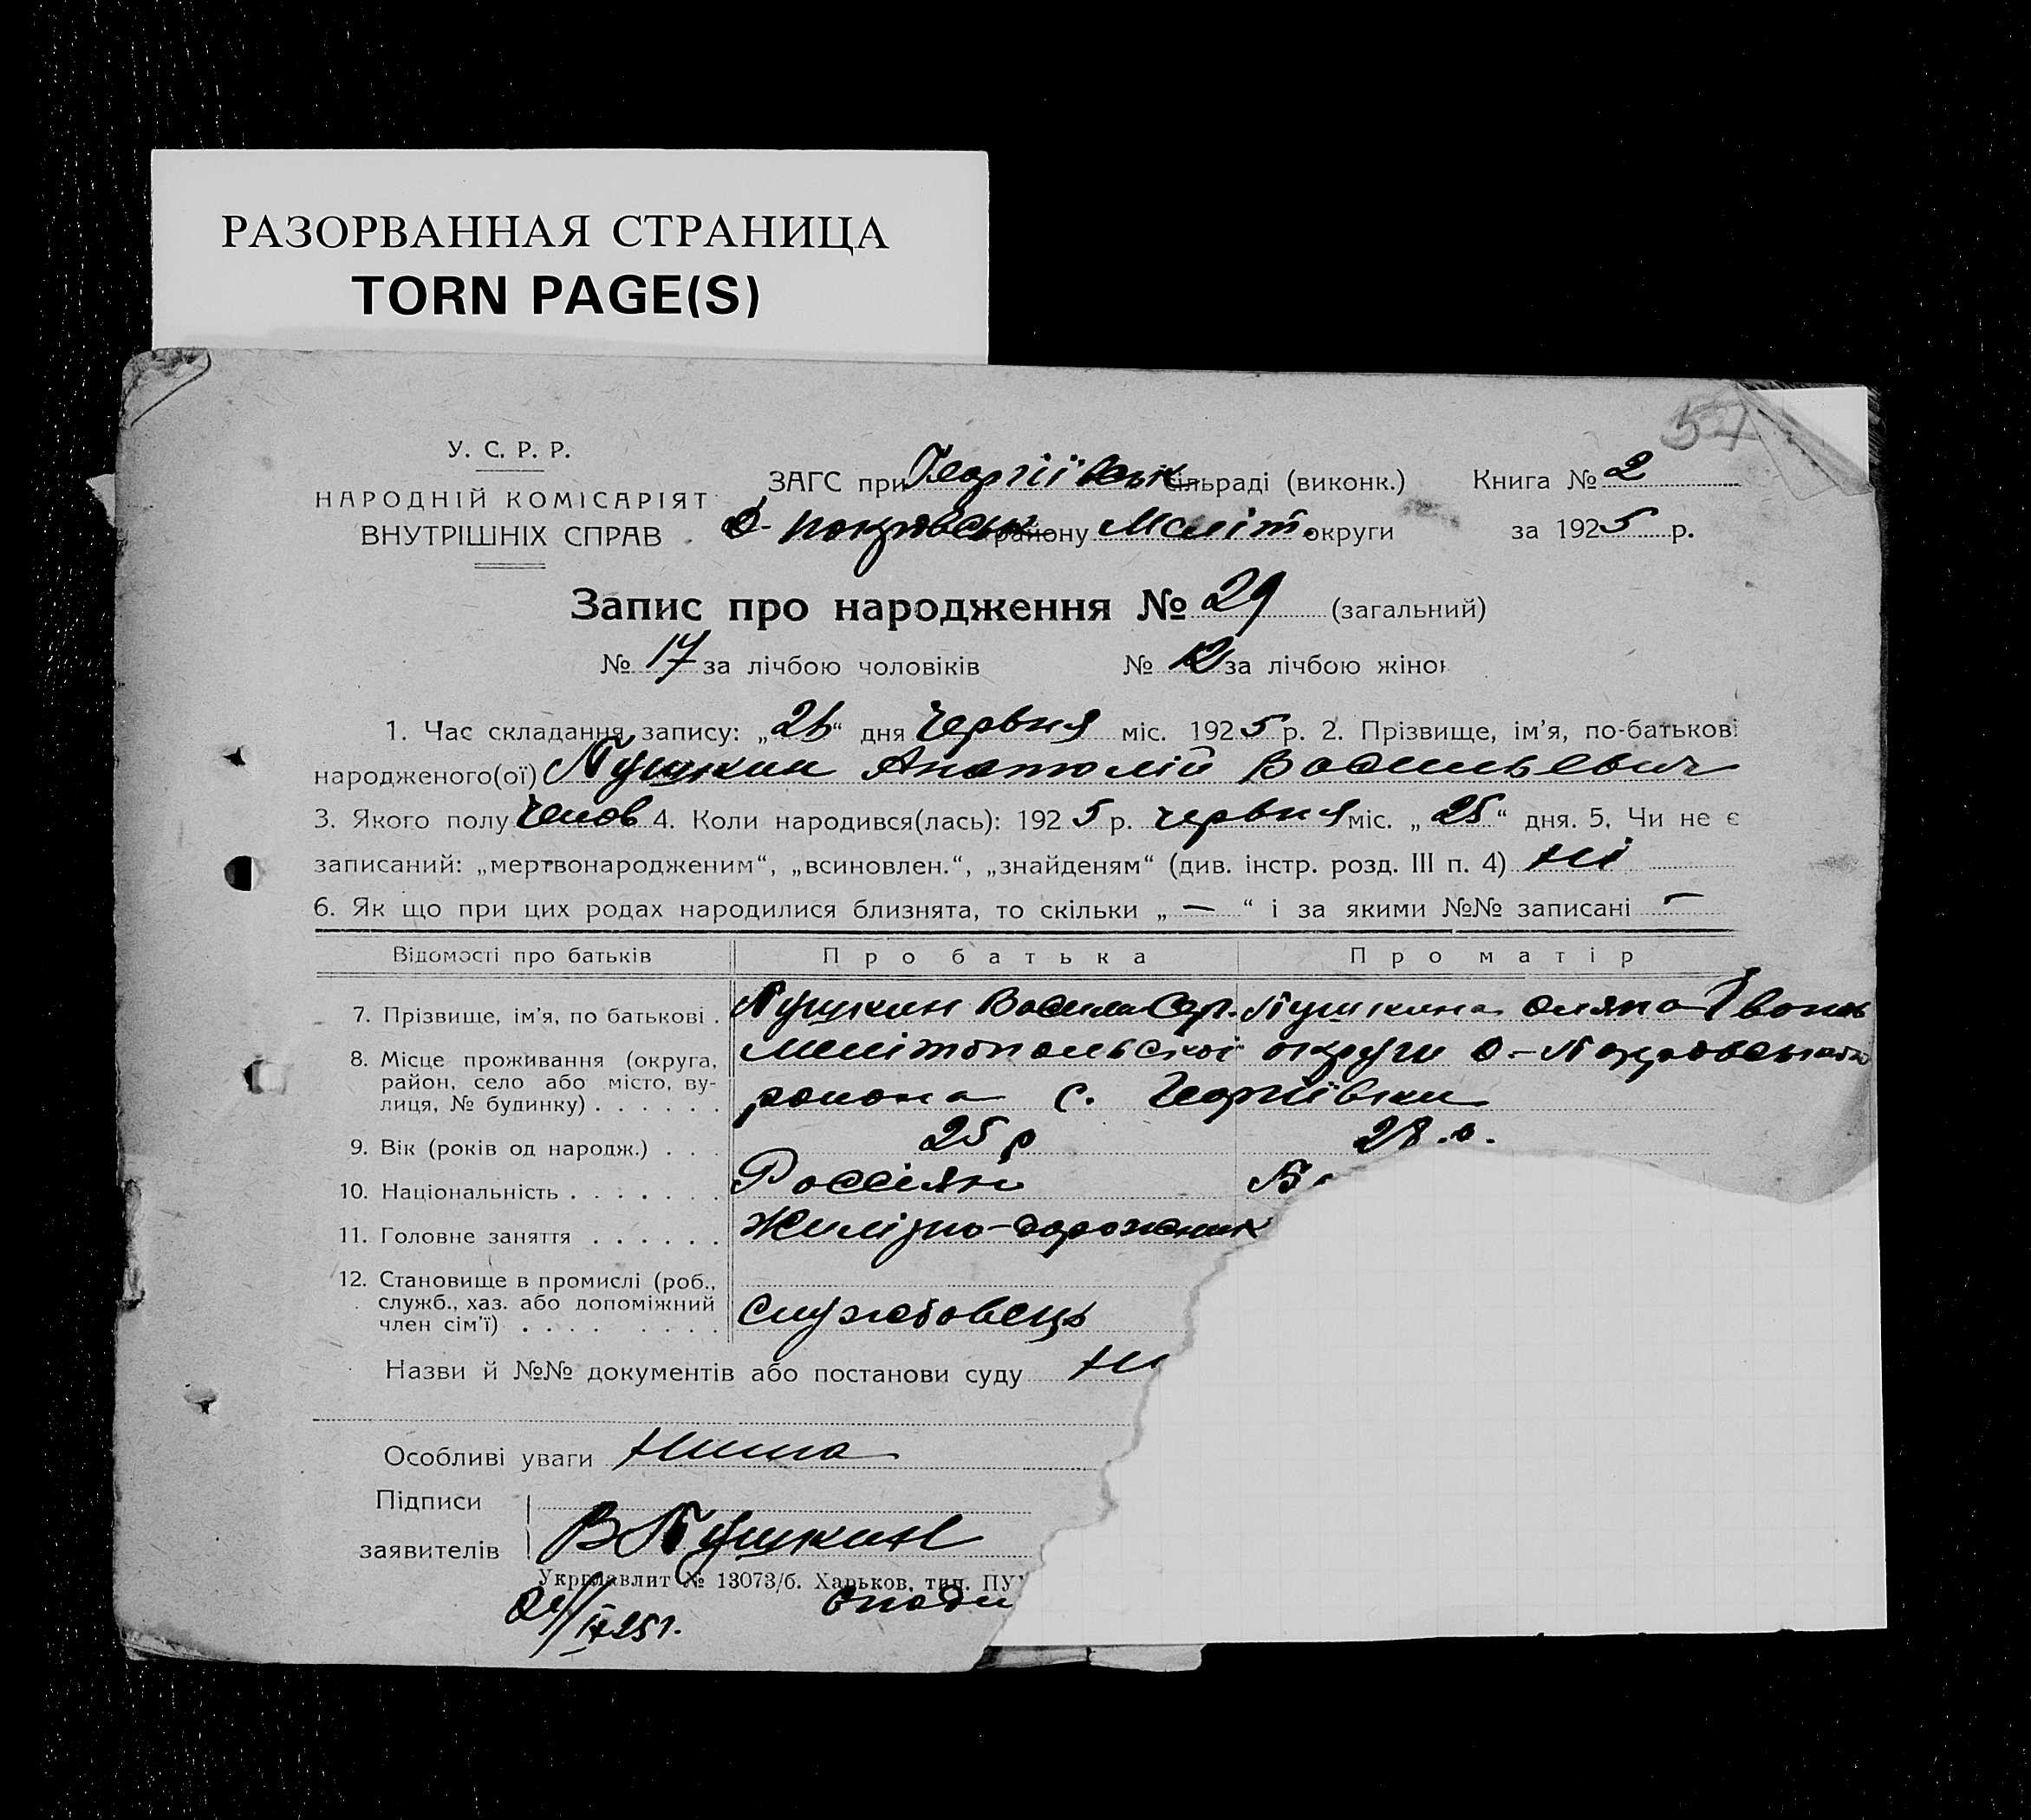 РАЗОРВАННАЯ СТРАНИЦА
TORN PAGE(S)
57
У. С. Р. Р.
НАРОДНІЙ КОМІСАРІЯТ
ВНУТРІШНІХ СПРАВ
ЗАГС при Георгіївськ сільраді (виконк.) Книга № 2
О-Покровськ району Меліт. округи за 1925 р.
Запис про народження № 29 (загальний)
№ 17 за лічбою чоловіків № 12 за лічбою жінок
1. Час складання запису: „26“ дня Червня міс. 1925 р. 2. Прізвище, ім’я, по-батькові
народженого(ої) Пушкин Анатолій Васильевич
3. Якого полу Чолов 4. Коли народився(лась): 1925 р. червня міс. „25“ дня. 5. Чи не є
записаний: „мертвонародженим“, „всиновлен.“, „знайденям“ (див. інстр. розд. III п. 4) ні
6. Як що при цих родах народилися близнята, то скільки „ — “ і за якими №№ записані —
Відомості про батьків Про батька Про матір
7. Прізвище, ім’я, по батькові . Пушкин Василь Сер. Пушкина Іванов
8. Місце проживання (округа, Мелітопольської округи О-Покровського
район, село або місто, ву-
лиця, № будинку) . . . . . . района с. Георгіївки
9. Вік (років од народж.) . . . 25 р 28 р.
10. Національність . . . . . . . Россіян
11. Головне заняття . . . . . . Желізно-дорожник
12. Становище в промислі (роб.,
служб., хаз. або допоміжний службовець
член сім’ї) . . . . . . . .
Назви й №№ документів або постанови суду
Особливі уваги Нима
Підписи
заявителів В Пушкин
Укрглавлит № 13073/б. Харьков, тип. ПУ